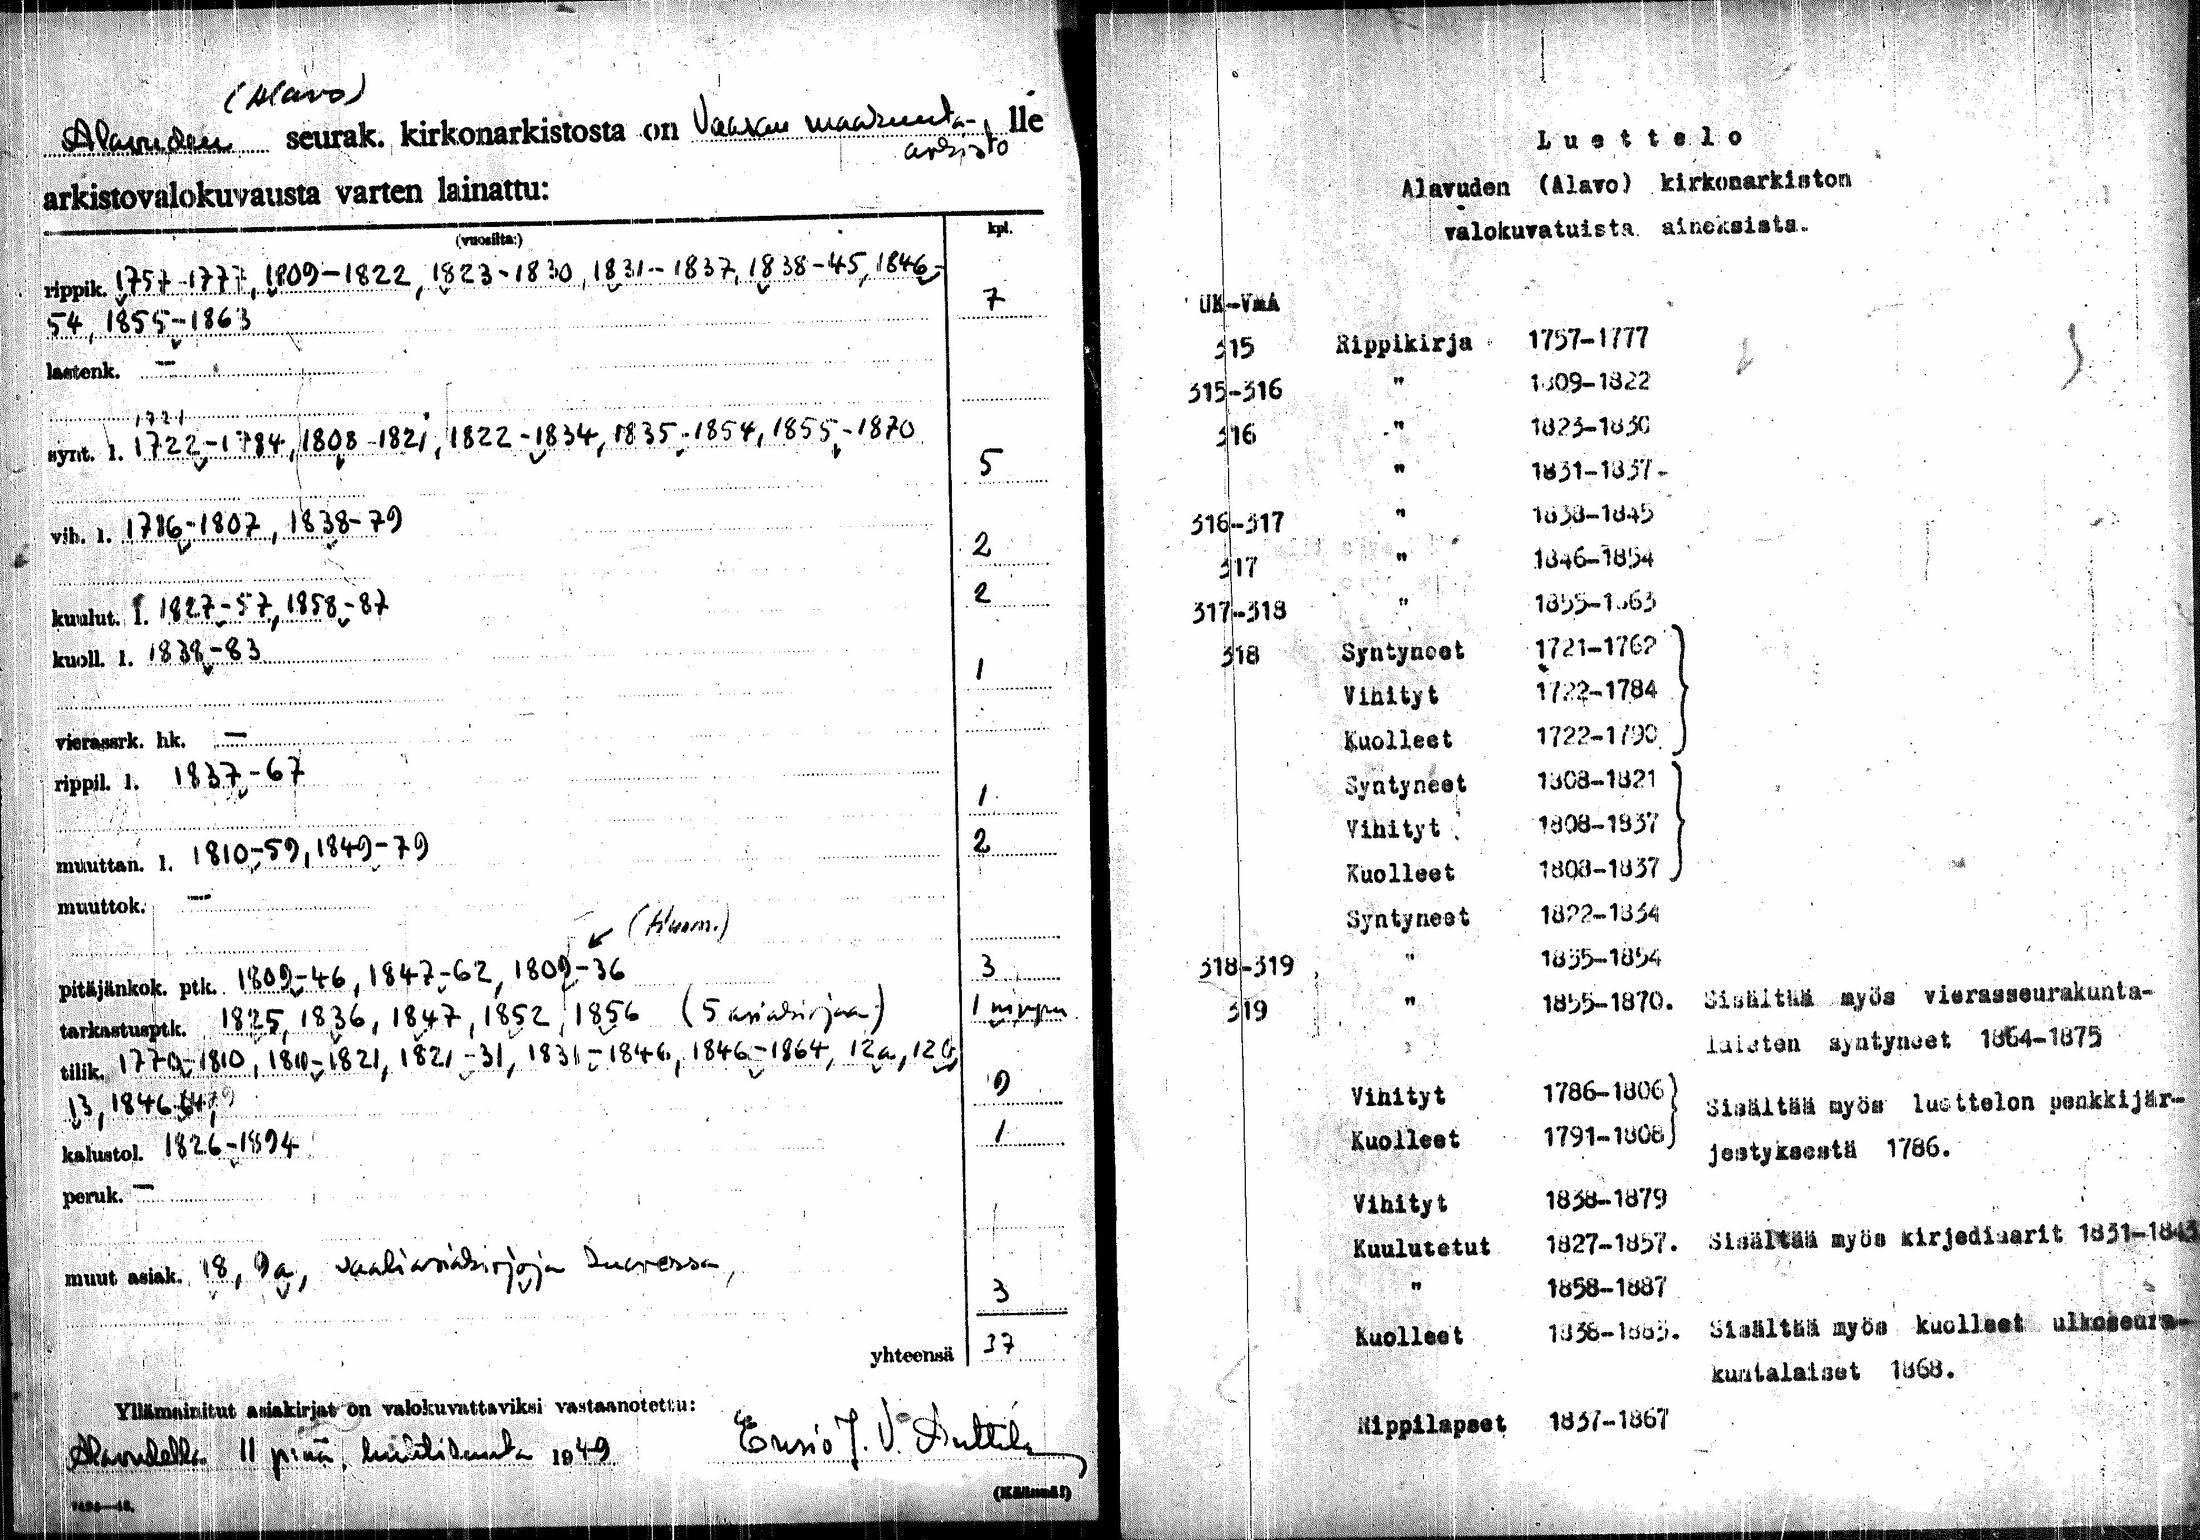 (Alavo)
Alavuden seurak. kirkonarkistosta on Vaasan maakunta- lle
arkisto
arkistovalokuvausta varten lainattu:
(vuosilta:) kpl.
rippik. 1757-1777, 1809-1822, 1823-1830, 1831-1837, 1838-45, 1846-
54, 1855-1863 7
lastenk. —
1721
synt. l. 1722-1784, 1808-1821, 1822-1834, 1835-1854, 1855-1870
5
vih. l. 1786-1807, 1838-79
2
kuulut. l. 1827-57, 1858-87 2
kuoll. l. 1838-83 1
vierassrk. hk. —
rippil. l. 1837-67
1
muuttan. l. 1810-59, 1849-79 2
muuttok. —
pitäjänkok. ptk. 1809-46, 1847-62, 1809-36 3
tarkastusptk. 1825, 1836, 1847, 1852, 1856 (5 asiakirjaa) 1 nippu
tilik. 1770-1810, 1810-1821, 1821-31, 1831-1846, 1846-1864, 12a,
13, 9
kalustol. 1826-1894 1
peruk. —
muut asiak. 18, 9a, vaaliasiakirjoja
3
yhteensä 37
Yllämainitut asiakirjat on valokuvattaviksi vastaanotettu:
Alavudella 11 p:nä, huhtikuuta 1949 Ensio J. V. Anttila
(Käännä!)
Luettelo
Alavuden (Alavo) kirkonarkiston
valokuvatuista aineksista.
UK-VMA
315 Rippikirja 1757-1777
315-316 " 1809-1822
316 " 1823-1830
" 1831-1837
316-317 " 1838-1845
317 " 1846-1854
317-318 " 1855-1863
318 Syntyneet 1721-1762
Vihityt 1722-1784
Kuolleet 1722-1790
Syntyneet 1808-1821
Vihityt 1808-1837
Kuolleet 1808-1837
Syntyneet 1822-1834
318-319 " 1835-1854
319 " 1855-1870. Sisältää myös vierasseurakunta-
laisten syntyneet 1864-1875
Vihityt 1786-1806 Sisältää myös luettelon penkkijär-
Kuolleet 1791-1808 jestyksestä 1786.
Vihityt 1838-1879
Kuulutetut 1827-1857. Sisältää myös kirjediaarit 1831-1843
" 1858-1887
Kuolleet 1838-1883. Sisältää myös kuolleet ulkoseura-
kuntalaiset 1868.
Rippilapset 1837-1867